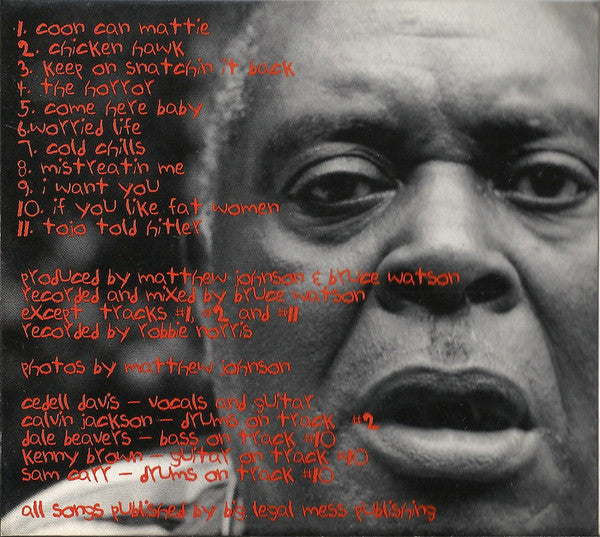 1. coon can mattie
2. chicken hawk
3. keep on snatchin it back
4. the horror
5. come here baby
6. worried life
7. cold chills
8. mistreatin me
9. i want you
10. if you like fat women
11. tojo told hitler
produced by matthew johnson & bruce watson
recorded and mixed by bruce watson
except tracks #1, #2 and #11
recorded by robbie norris
photos by matthew johnson
cedell davis – vocals and guitar
calvin jackson – drums on track #2
dale beavers – bass on track #10
kenny brown – guitar on track #10
sam carr – drums on track #10
all songs published by big legal mess publishing